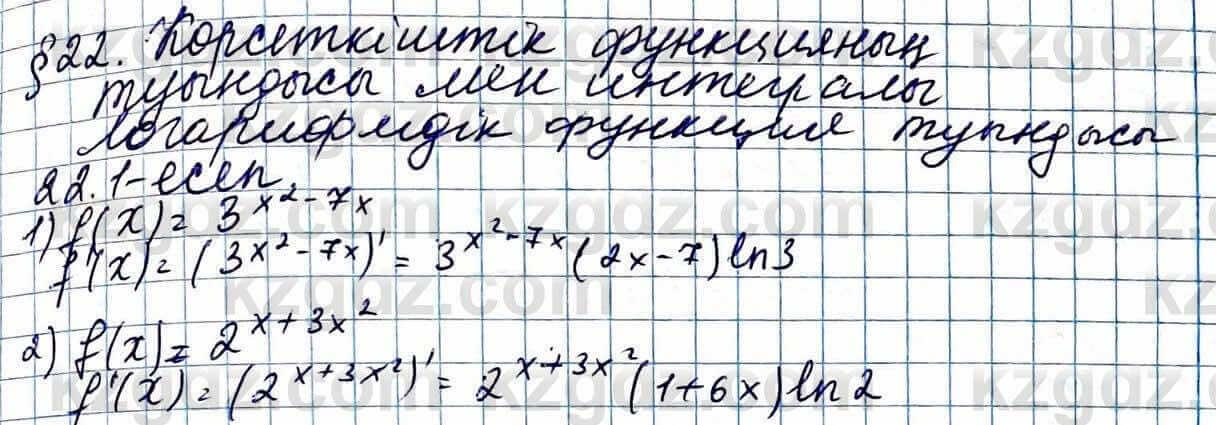 §22. Көрсеткіштік функцияның
туындысы мен интегралы
Логарифмдік функция туындысы
22.1-есеп
1) f(x) = 3^{x²-7x}
f'(x) = (3^{x²-7x})' = 3^{x²-7x}(2x-7)ln3
2) f(x) = 2^{x+3x²}
f'(x) = (2^{x+3x²})' = 2^{x+3x²}(1+6x)ln2
kzgdz.com